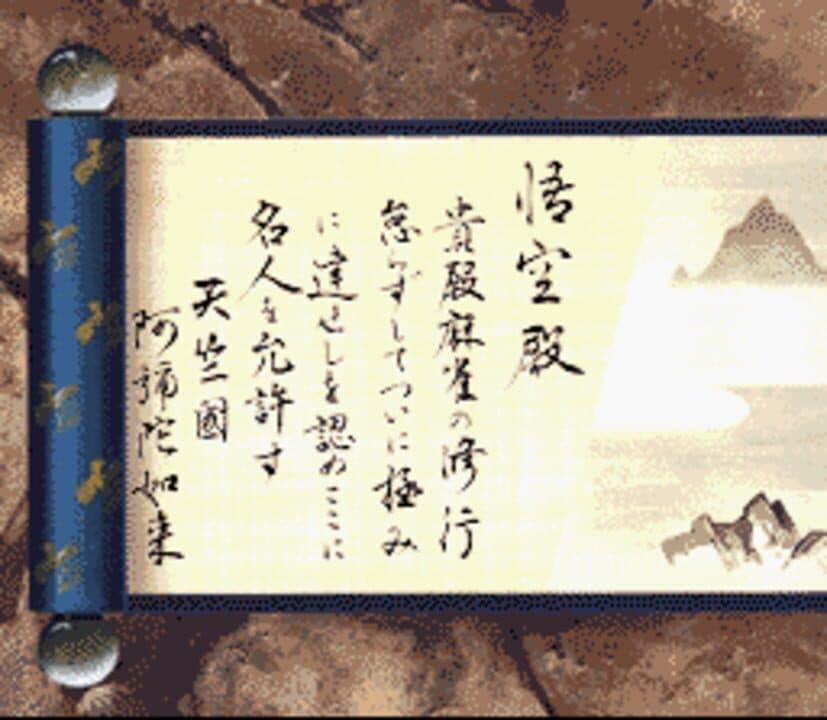 悟空殿
貴殿麻雀の修行
怠らずしてついに極み
に達せしを認めここに
名人を允許す
天竺國
阿彌陀如来